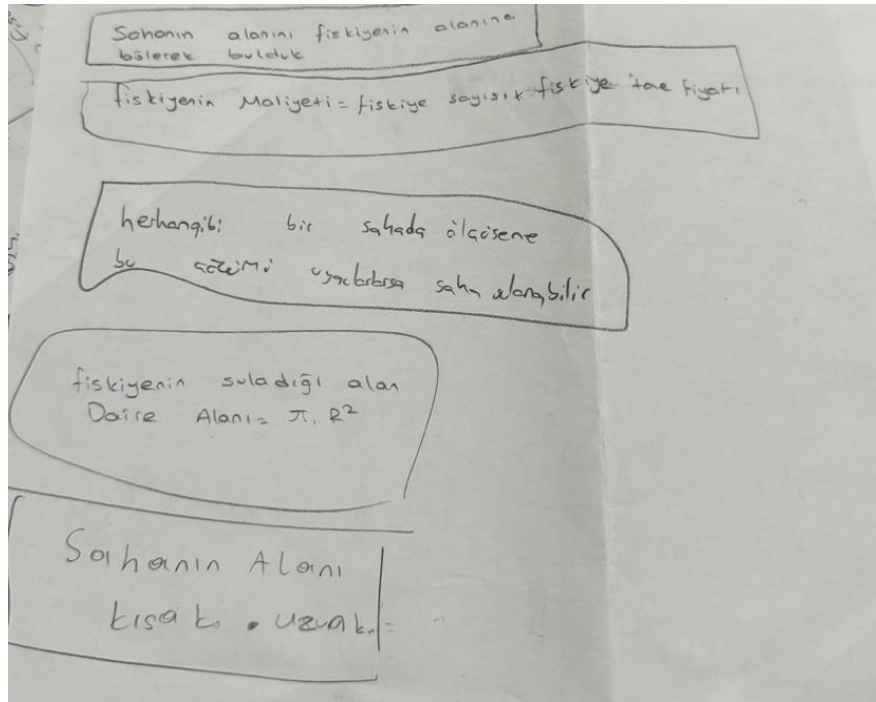 Sahanın alanını fiskiyenin alanına
bölerek bulduk
fiskiyenin Maliyeti = fiskiye sayısı x fiskiye tane fiyatı
herhangibi bir sahada ölçüsene
bu çözümü uygularlarsa saha sulanabilir
fiskiyenin suladığı alan
Daire Alanı = π. R²
Sahanın Alanı
kısa k. . uzun k. =